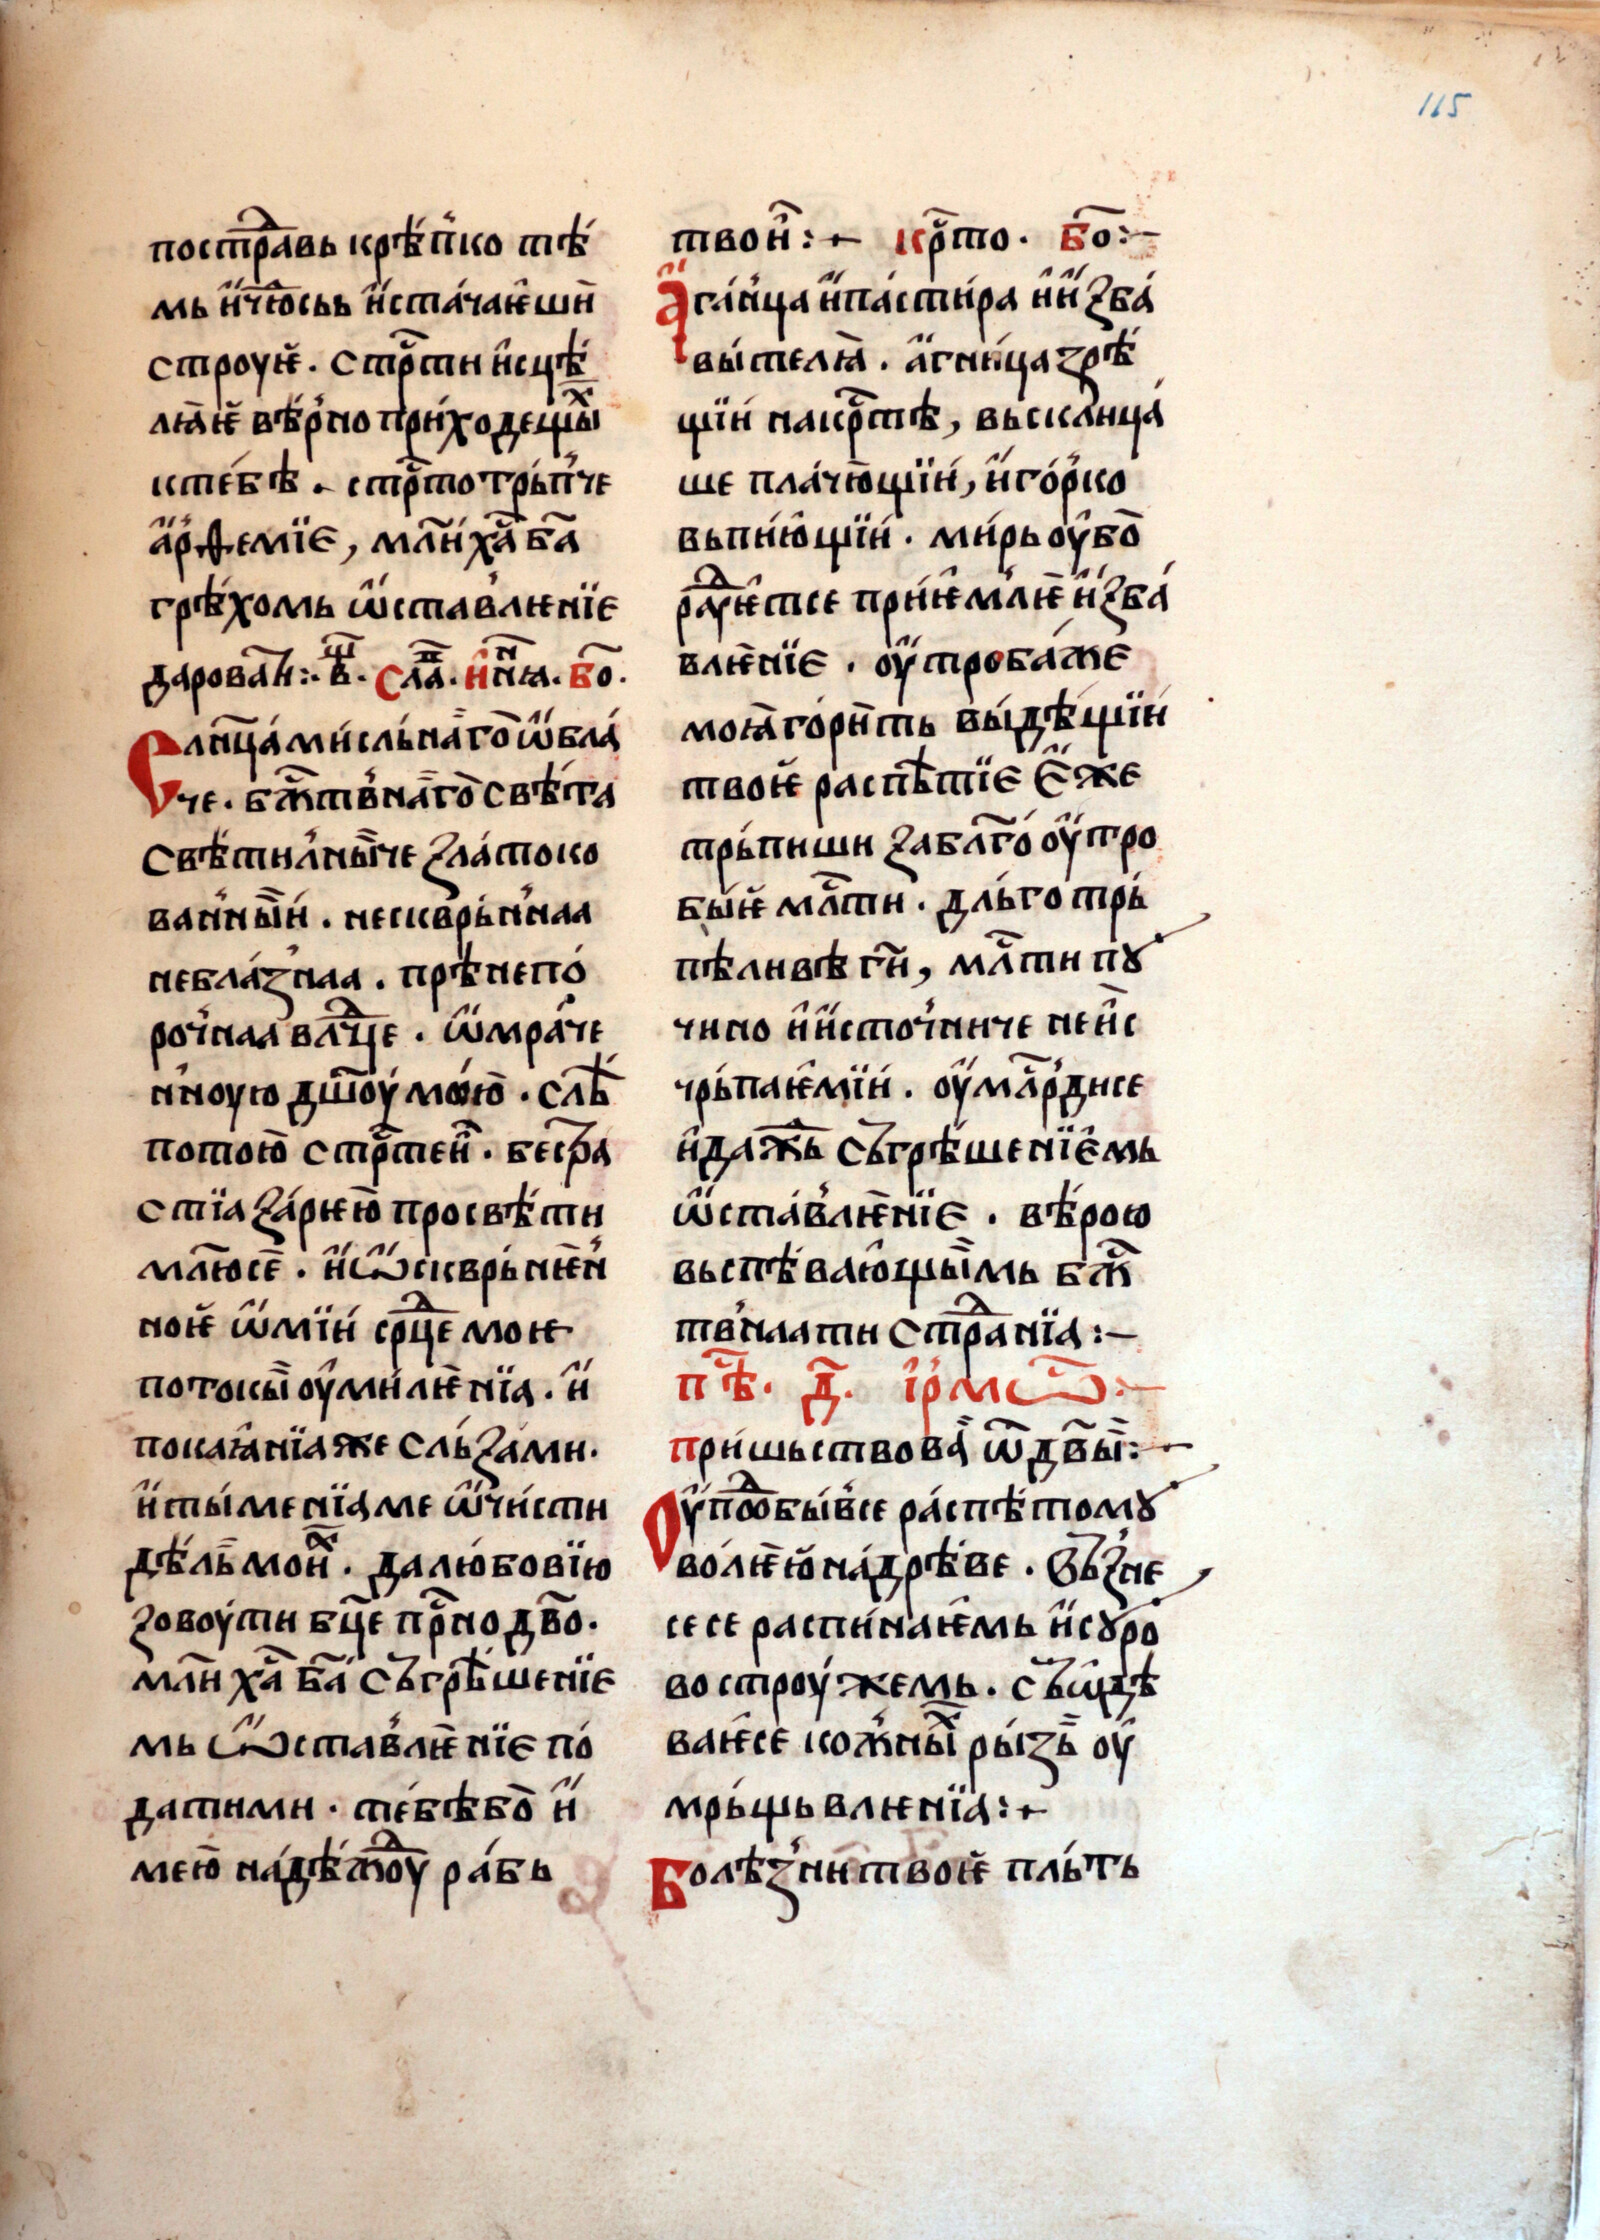 115
пострⷣавь крѣ́пко тѣ́
мь и҆ чю̑сьь и҆ста́чаѥ҆ши
строуѥ҆. стрⷭ҇ти и҆сцѣ́
лꙗ҆ѥ вѣ́рно при́ходещыⷯ
кте́бѣ. стрⷭ҇тотрьпче
а҆рѳемїе, мл҃и хⷭ҇а б҃а
грѣ́хомь ѡ҆ставлѥнїе
даровати:. в҃. слаⷡ. и҆ ннꙗ. бо.
Слн҃ца ми́сльнаго ѡ҆бла́
че. бжⷭ҇твнаго свѣ́та
свѣ́тилныче златоко
ва́нныи́. нескврьннаа
небла́знаа. прѣнепо́
рочнаа влⷣце. ѡ҆мра́че
нноую дш҃оу мою̀. слѣ́
потою̀ стрⷭ҇теи. бестра
стїа за́рѥю̀ просвѣ́ти
млю̀се. и҆ ѡ҆скврьнѥн
ноѥ҆ ѡ҆мїи́ срⷣце моѥ
потокы ѹ҆ми́лѥнїа. и҆
покаꙗ҆нїа же сльза́ми.
и҆ ты́менїа ме ѡ҆чи́сти
дѣ́ль моиⷯ. да лю́бовїю
зовоу́ти бц҃е прⷭ҇но дв҃о.
мл҃и хⷭ҇а б҃а сьгрѣшенїе
мь ѡ҆ставлѥнїе по́
датими. те́бѣ бо и҆
мею̀ на́дѣ́жⷣоу ра́бь
твои҆:~ крⷭ҇то. бо:~
А҆га́нца и҆ па́сти́ра и҆ и҆зба́
вы́телꙗ. а҆гни́ца зрѣ́
щїи на крⷭ҇тѣ, вьскли́ца
ше пла́чю̀щїи́, и҆ го́рко
вьпи́ю̑щїи́. ми́рь ѹ҆бо
раⷣуѥ҆тсе при́ѥ҆млѥ и҆зба́
влѥнїе. ѹ҆троба́ же
моꙗ̀ го́ри́ть вы́дѣ́щїи́
твоѥ҆ распѣтїе е҆же
трьпиши за бл҃го́ ѹ҆тро
бы́ѥ млⷭ҇ти. дльготрь
пѣливѣ ги҃, млⷭ҇ти пꙋ
чино и҆ и҆сточниче неи҆с
чрьпаѥ҆мїи́. ѹ҆млⷭ҇рдисе
и҆ дажⷣь сьгрѣшенїе҆мь
ѡ҆ста́влѥнїе. вѣ́рою
вьспѣ́ваю̑щыимь бжⷭ҇
твнаа ти страⷣнїа:~
пѣⷭ҇. д҃. і҆рмѡⷭ҇:~
при́шьствова ѿ дв҃ы:~
Ѹ҆поⷣбы́все ра́спѣтомꙋ
во́лѥю̀ на́ дрѣ́ве. вьзне
сесе распи́наѥ҆мь и҆ сꙋро
во строу́жемь. сьѡ҆дѣ
ваѥ҆се кожныⷯ ры́зь ѹ҆
мрьщьвлѥнїа:~
Болѣ́знии твоѥ҆ пльть